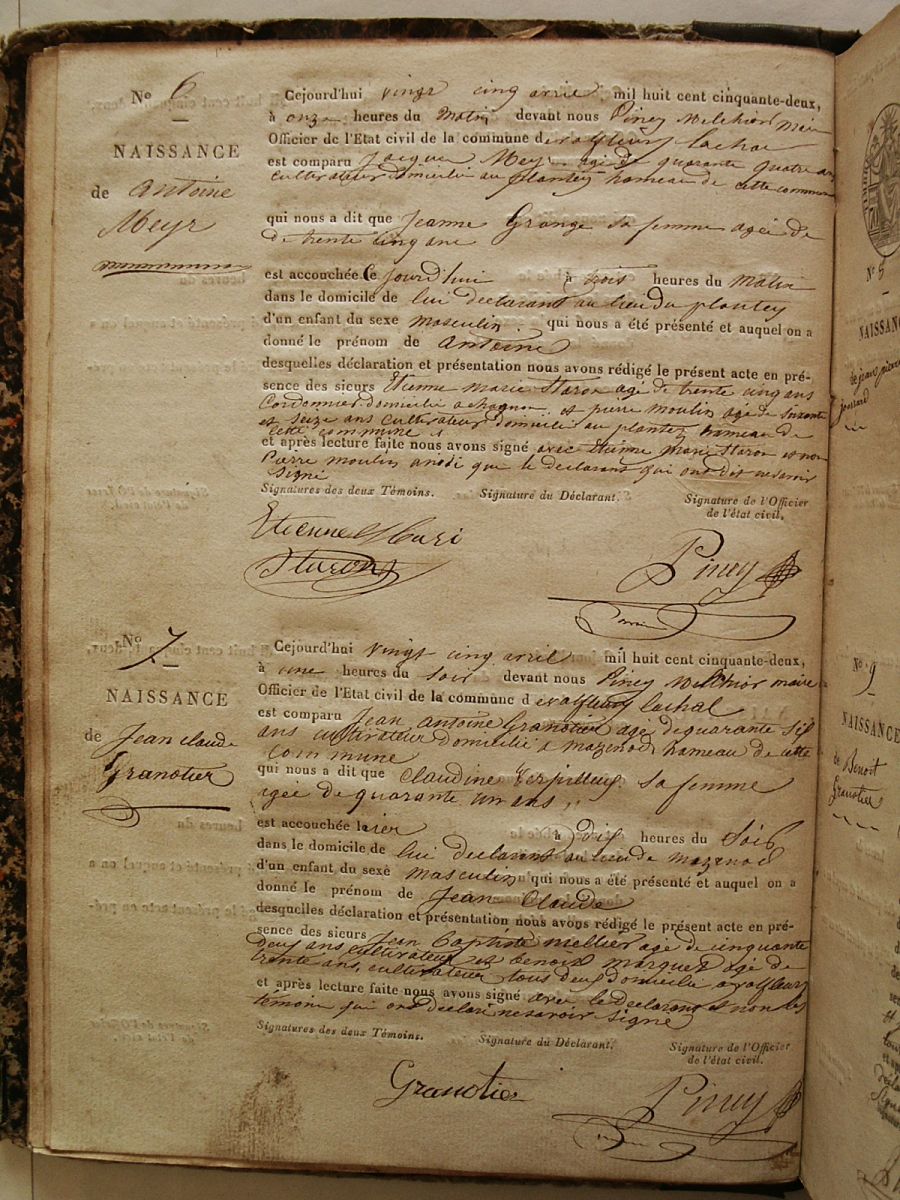 No 6
NAISSANCE
de antoine
Meyr
Cejourd'hui vingt cinq avril mil huit cent cinquante-deux,
à onze heures du matin devant nous Piney Melchior maire
Officier de l'Etat civil de la commune de valfleury lachal
est comparu Jacque Meyr agé de quarante quatre ans
cultivateur domicilié au plantey hameau de cette commune
qui nous a dit que Jeanne Grange sa femme agée de
de trente cinq ans
est accouchée Ce jourd'hui à trois heures du matin
dans le domicile de lui declarant au lieu du plantey
d'un enfant du sexe masculin qui nous a été présenté et auquel on a
donné le prénom de antoine
desquelles déclaration et présentation nous avons rédigé le présent acte en pré-
sence des sieurs Etienne marie Staron agé de trente cinq ans
Cordonnier domicilié a chagnon et pierre moulin agé de soixante
et seize ans cultivateur domicilié au plantey hameau de
cette commune
et après lecture faite nous avons signé avec Etienne Marie Staron et non
Pierre moulin que le declarant qui ont dit ne savoir
signé
Signatures des deux Témoins. Signature du Déclarant. Signature de l'Officier
de l'état civil.
Etienne Mari
Staron
Piney
No 7
NAISSANCE
de Jean claude
Granotier
Cejourd'hui vingt cinq avril mil huit cent cinquante-deux,
à une heures du soir devant nous Piney Melchior maire
Officier de l'Etat civil de la commune d evalfleury lachal
est comparu Jean antoine Granotier agé de quarante six
ans cultivateur domicilié a mazenod hameau de cette
Commune
qui nous a dit que Claudine sa femme
agée de quarante un ans
est accouchée hier à dix heures du Soir
dans le domicile de lui declarant au lieu de mazenod
d'un enfant du sexe masculin qui nous a été présenté et auquel on a
donné le prénom de Jean Claude
desquelles déclaration et présentation nous avons rédigé le présent acte en pré-
sence des sieurs Jean Baptiste mellier agé de cinquante
deux ans cultivateur et benoit marquet agé de
trente ans cultivateur tous deux domicilié a valfleury
et après lecture faite nous avons signé avec le declarant et non les
témoins qui ont declaré ne savoir signé
Signatures des deux Témoins. Signature du Déclarant. Signature de l'Officier
de l'état civil.
Granotier
Piney
No 5
NAISSANC
de jean pierre
jossard
No 9
NAISSANCE
de Benoit
Granotier